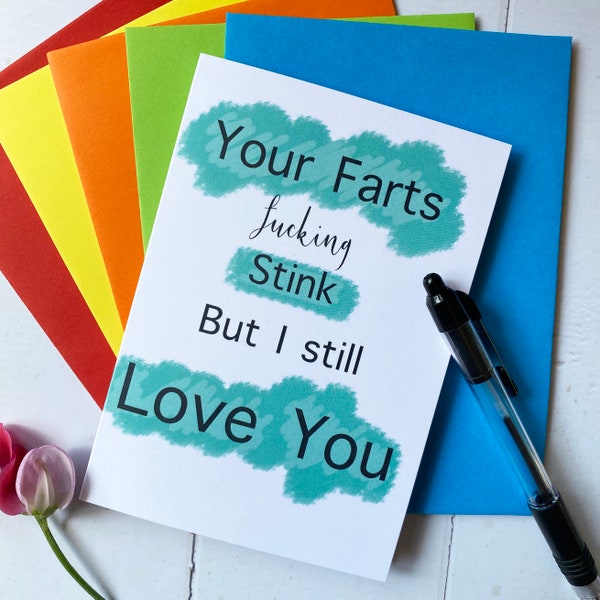 Your Farts
fucking
Stink
But I still
Love You